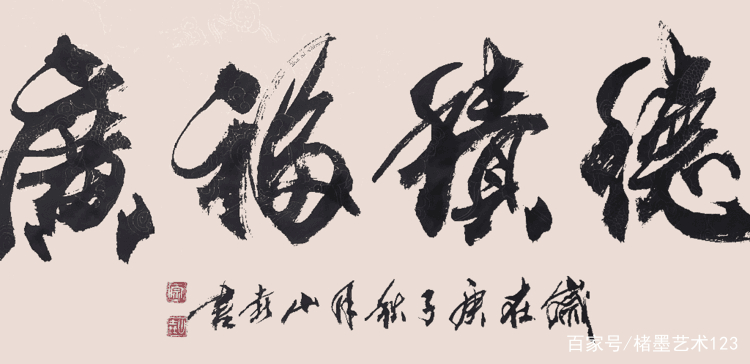 德積福廣
歲在庚子秋月山書
百家号/楮墨艺术123